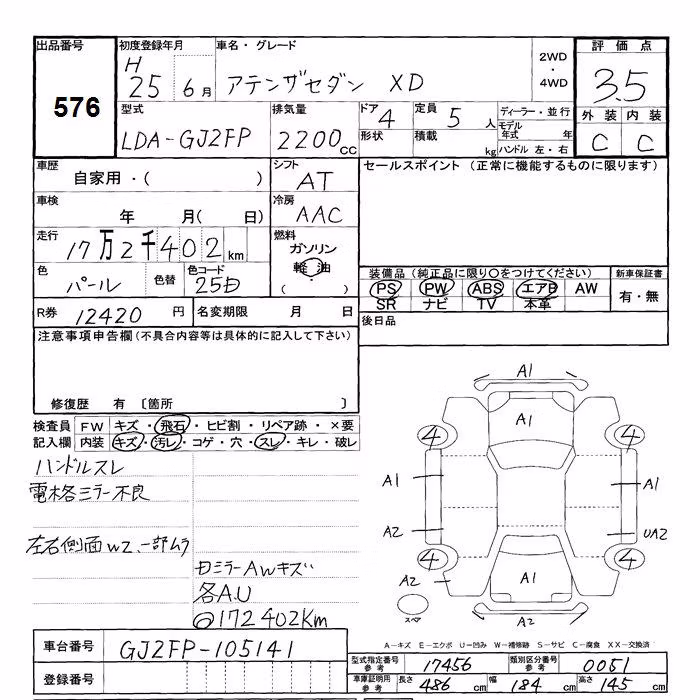 出品番号 初度登録年月 車名・グレード 2WD・4WD 評価点
576 H25 6月 アテンザセダン XD 3.5
型式 排気量 ドア 定員 ディーラー・並行 外装 内装
LDA-GJ2FP 2200cc 4 5人 モデル年式 年 C C
形状 積載 kg ハンドル 左・右
車歴 シフト セールスポイント (正常に機能するものに限ります)
自家用・( ) AT
車検 冷房
年 月(日) AAC
走行 燃料
17万2千402km ガソリン
軽油
( )
色 色替 色コード 装備品(純正品に限り○をつけてください) 新車保証書
パール 25D PS PW ABS エアB AW 有・無
SR ナビ TV 本革
R券 12420円 名変期限 月 日 後日品
注意事項申告欄(不具合内容等は具体的に記入して下さい)
修復歴 有 〔箇所 〕
検査員 FW キズ・飛石・ヒビ割・リペア跡・×要
記入欄 内装 キズ・汚レ・コゲ・穴・スレ・キレ・破レ
ハンドルスレ
電格ミラー不良
左右側面W2、一部ムラ
ミラーAWキズ
各A.U
172402Km
A1
A1
4 4
A1 A1
A2 UA2
4 4
A2 A1
スペア A2
A-キズ E-エクボ U-凹み W-補修跡 S-サビ C-腐食 XX-交換済
車台番号 GJ2FP-105141
型式指定番号 参考 17456 類別区分番号 参考 0051
登録番号
車庫証明用 参考 長さ 486cm 幅 184cm 高さ 145cm